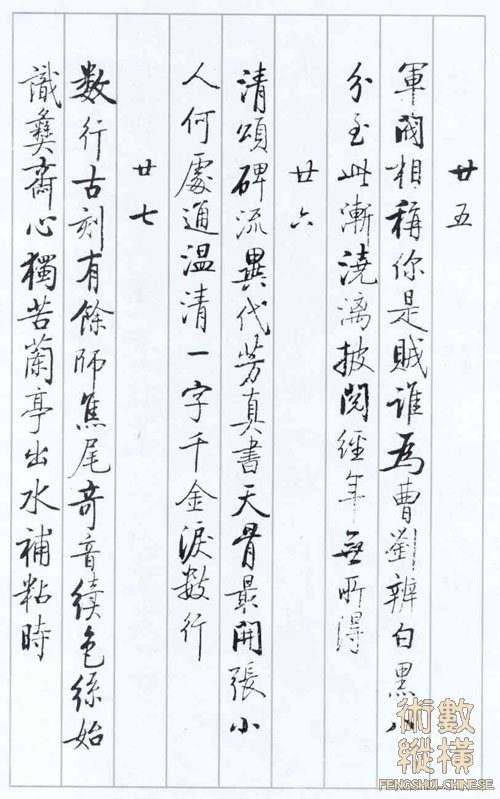 廿五
軍閥相稱你是賊誰為曹劉辨白黑八
分至此漸澆漓披閱經年無所得
廿六
清頌碑流異代芳真書天骨最開張小
人何處通温清一字千金淚数行
廿七
数行古刻有餘師焦尾奇音續色絲始
識彝齋心獨苦蘭亭出水補粘時
術數
縱橫
FENGSHUI-CHINESE